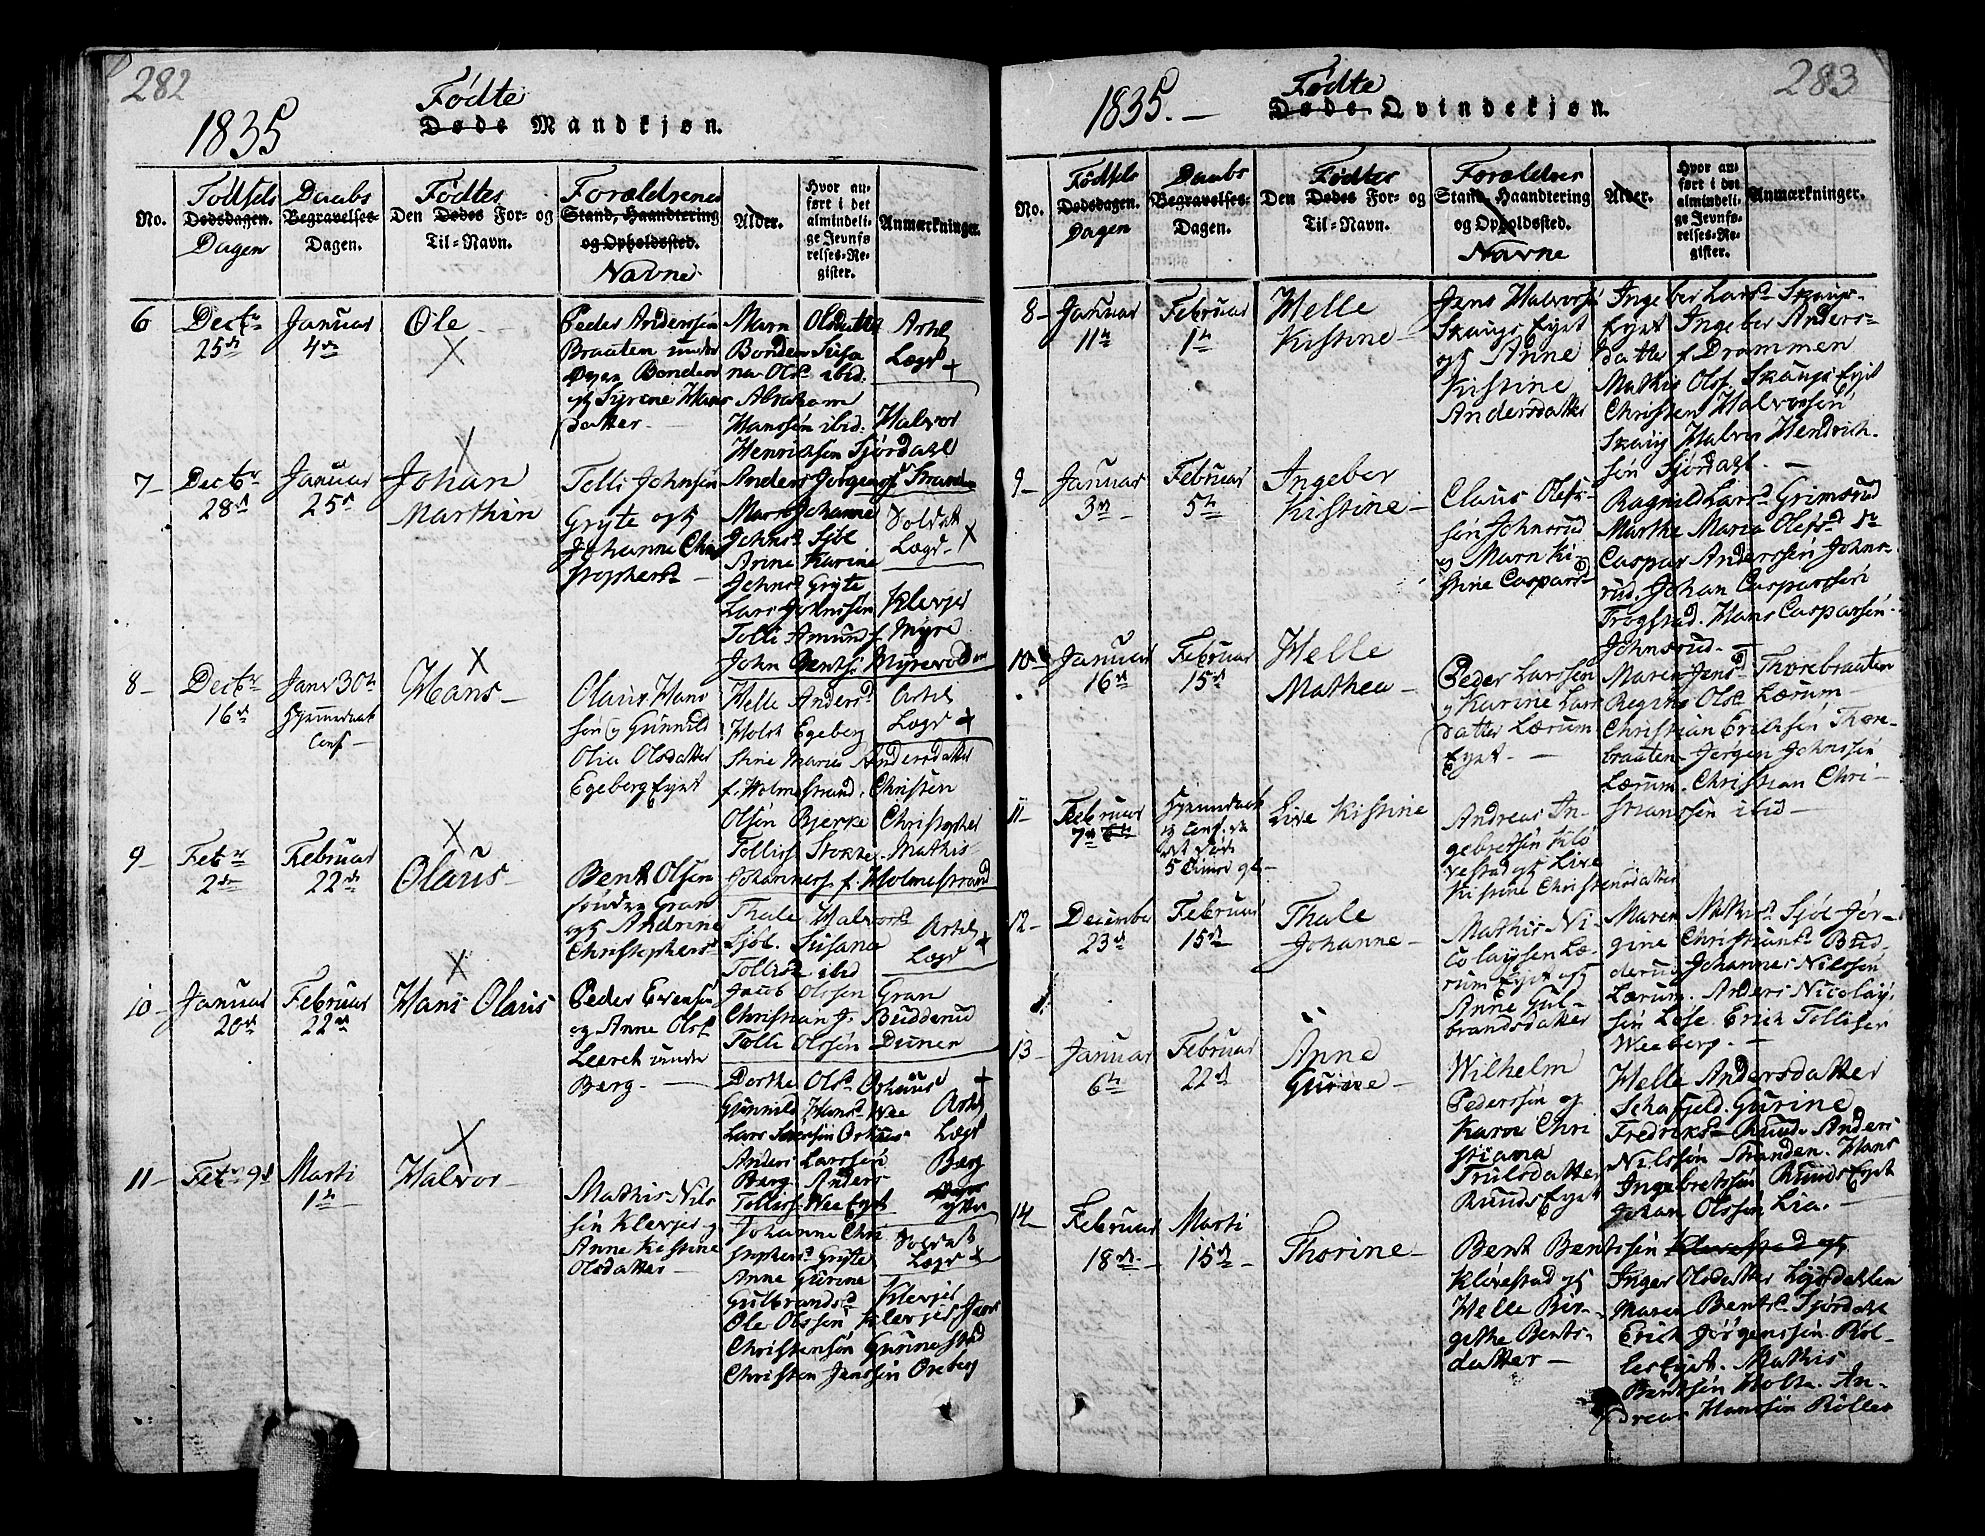 282
1835
Fødte
Døde Mandkjøn.
No.
Fødsels
Dødsdagen.
Dagen
Daabs
Begravelses-
Dagen.
Fødtes
Den Dødes For- og
Til-Navn.
Forældrenes
Stand, Haandtering
og Opholdssted.
Navne
Alder.
Hvor an-
ført i det
almindeli-
ge Jevnfø-
relses-Re-
gister.
Anmærkninger.
6
Decbr
25de
Januar
4de
Ole
Peder Anderssen
Braaten under
Bonden
og Syrene Hans
datter
Marn Olsdatter
Bonden Susa
na Olsd ibid.
Abraham
Hanssøn ibid. Halvor
Henrichsen Sjørdahl
Lægd +
7 -
Decbr
28d
Januar
25d
Johan
Marthin
Tolli Johnsen
Gryte og
Johanne Chri
stophersd
Anders Jørgens Stranden
Marn Johanne
Johnsd Sjøl
Arine Karine
Johnsd Gryte
Lars Johnssen Klevjer
Tolli Amunds Myre
John Bentss Myrevolden
Soldat
Lægd X
8 -
Decbr
16d
Janr 30te
Hjemmedøbt
Conf
Hans
Olaus Hans
søn og Gunnild
Olia Olsdatter
Egeberg Ejet
Helle Andersd
Holst Egeberg
Stine Marie Andersdatter
f. Holmestrand. Christen
Olsøn Bjerke Christopher
Tolliss Stokke. Mathis
Johanness f. Holmestrand
Lægd +
9 -
Febr
2den
Februar
22de
Olaus
Bent Olsen
søndre Gran
og Andrine
Christophersd
Thale Halvorsd
Sjøl. Susana
Tollisd ibid
Jacob Olssen Gran
Christian J. Budderud
Tolli Olssøn Dunen
Lægd +
10
Januar
20d
Februar
22de
Hans Olaus
Peder Evensen
og Anne Olsd
Leeret under
Berg.
Dorthe Olsd Orhuus
Gunnild Hansd Wee
Lars Sørensøn Orhuus
Anders Larssøn Berg
Berg. Anders
Tolliss Wee Ejet
Lægd
Berg
11 -
Febr 9d
Marti
1te
Halvor
Mathis Nils
søn Klevjer og
Anne Kistine
Olsdatter
Johanne Chri
stophersd Gryte
Anne Gurine
Gulbrandsd Klevjer
Ole Olssøn Klevjer Jens
Christensøn Gunnestad
Christen Jenssøn Oreberg
Soldat
Lægd +
283
1835.
Fødte
Døde Qvindekjøn.
No.
Fødsels
Dødsdagen.
Dagen
Daabs
Begravelses-
Dagen.
Fødtes
Den Dødes For- og
Til-Navn.
Forældres
Stand, Haandtering
og Opholdssted.
Navne
Alder.
Hvor an-
ført i det
almindeli-
ge Jevnfø-
relses-Re-
gister.
Anmærkninger.
8 -
Januar
11te
Februar
1te
Helle
Kistine
Jens Halvorsøn
Skaugs Ejet
og Anne
Kistine
Andersdatter
Ingeber Larsd Skaugs-
Ejet Ingeber Anders-
datter f. Drammen
Mathis Olss. Skaugs Ejet
Christen Halvorsøn
Skaug Halvor Hendrich-
søn Sjørdahl.
9 -
Januar
3de
Februar
5te
Ingeber
Kistine -
Claus Olefs-
søn Johnsrud
og Marn Ki-
stine Caspard
Ragnild Larsd Grimsrud
Marthe Maria Olefsd do
Caspar Anderssøn Johns-
rud. Johan Casparssøn
Frogstad. Hans Casparsøn
Johnsrud. -
10 -
Januar
16de
Februar
15de
Helle
Mathea -
Peder Larssøn
og Karine Lars
datter Lærum
Ejet. -
Maren Jensd Thorebraaten
Regine Olsd Lærum -
Christian Ericksøn Thore-
braaten - Jørgen Johnssøn
Lærum. Christian Chri-
stianssøn ibid -
11 -
Februar
7de 6te
Hjemmedøbt
Live Kistine
Andreas In-
gebretsøn Klø
vestad og Live
Kistine Christensdatter
12 -
December
23de
Februar
15de
Thale
Johanne -
Mathis Ni-
colaysen Læ-
rum Ejet og
Anne Gul-
brandsdatter
Maren Mathisd Sjøl Jør-
gine Christiansd Bud-
derud Johannes Nilssøn
Lærum. Anders Nicolay-
søn Løse. Erich Tollisøn
Weeberg. -
13 -
Januar
6te
Februar
22de
Anne
Gurine -
Wilhelm
Pederssøn og
Karn Chri
stiana
Trulsdatter
Ruuds Ejet
Helle Andersdatter
Schafjeld. Gurine
Fredriksd Ruud. Anders
Nilssøn Stranden. Hans
Ingebretssøn Ruuds Ejet
Johan Olssøn Lia. -
14 -
Februar
18de -
Marti
15de -
Thorine -
Bent Bentssøn Kløvestad og
Kløvestad og
Helle Bir-
gethe Bents-
datter -
Inger Olsdatter Sjørdahlen
Maren Bentsd Sjørdahl
Erich Jørgenssøn Røl-
les Ejet. Mathis
Bentsøn Holte. An-
dreas Hanssøn Rølles